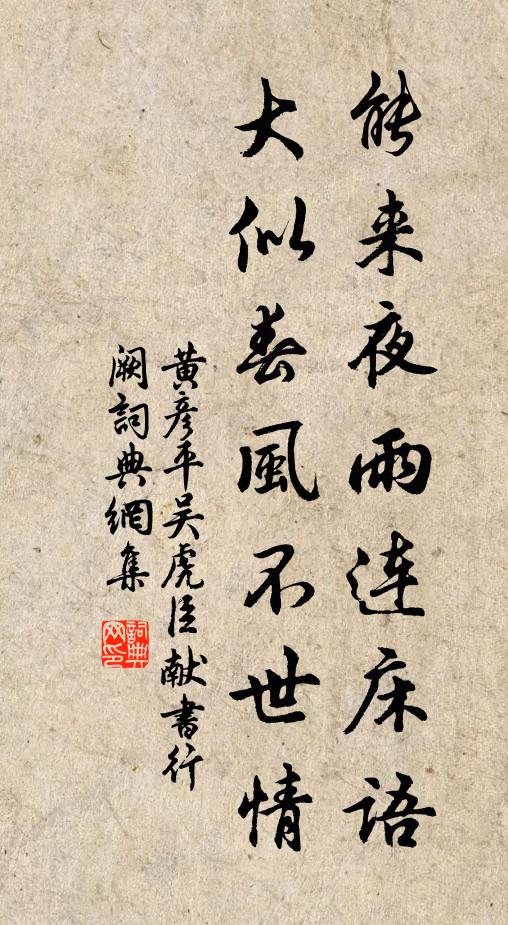 能来夜雨連床語
大似春風不世情
黄彦平吴虎臣献書行
阙詞典網集
詞典
网印